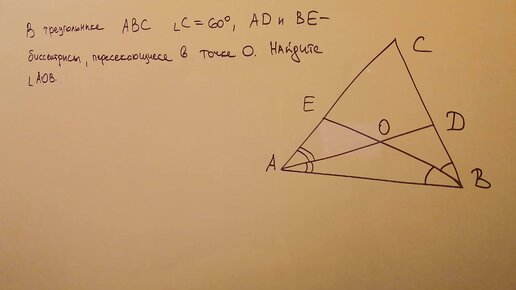 В треугольнике ABC ∠C = 60°, AD и BE –
биссектрисы, пересекающиеся в точке O. Найдите
∠AOB.
C
E
O
D
A
B